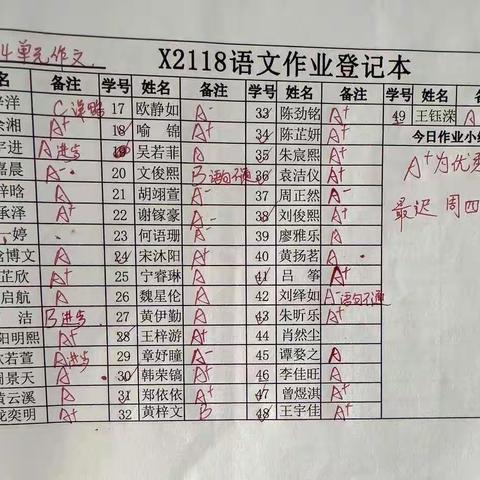 4单元作文
X2118语文作业登记本
名 备注 学号 姓名 备注 学号 姓名 备注 学号 姓名 备注
洋 C 17 欧静如 A- 33 陈劲铭 A 49 王钰溁 A
湘 A+ 18 喻锦 A+ 34 陈芷妍 A+ 今日作业小结
宇进 A进步 19 吴若菲 A 35 朱宸熙 A+ A+为优秀
嘉晨 A- 20 文俊熙 B语句不通 36 袁洁仪 A+
晗 A 21 胡翊萱 A- 37 周正然 A- 最迟周四
承泽 A 22 谢镓豪 A- 38 刘俊熙 A+
一婷 A 23 何语珊 A- 39 廖雅乐 A
博文 A 24 宋沐阳 A+ 40 黄扬茗 A
芷欣 A+ 25 宁睿琳 A 41 吕筝 A+
启航 A 26 魏星伦 A 42 刘绎如 A-语句不通
洁 B进步 27 黄伊勤 A 43 朱昕乐 A+
阳明熙 A+ 28 王梓游 A+ 44 肖然尘
若萱 A进步 29 章妤曈 A- 45 谭婺之 A
周景天 A 30 韩荣镐 A+ 46 李佳旺 A
黄云溪 A 31 郑依依 A+ 47 曾煜淇 A+
龙奕明 A+ 32 黄梓文 B 48 王宇佳 A+